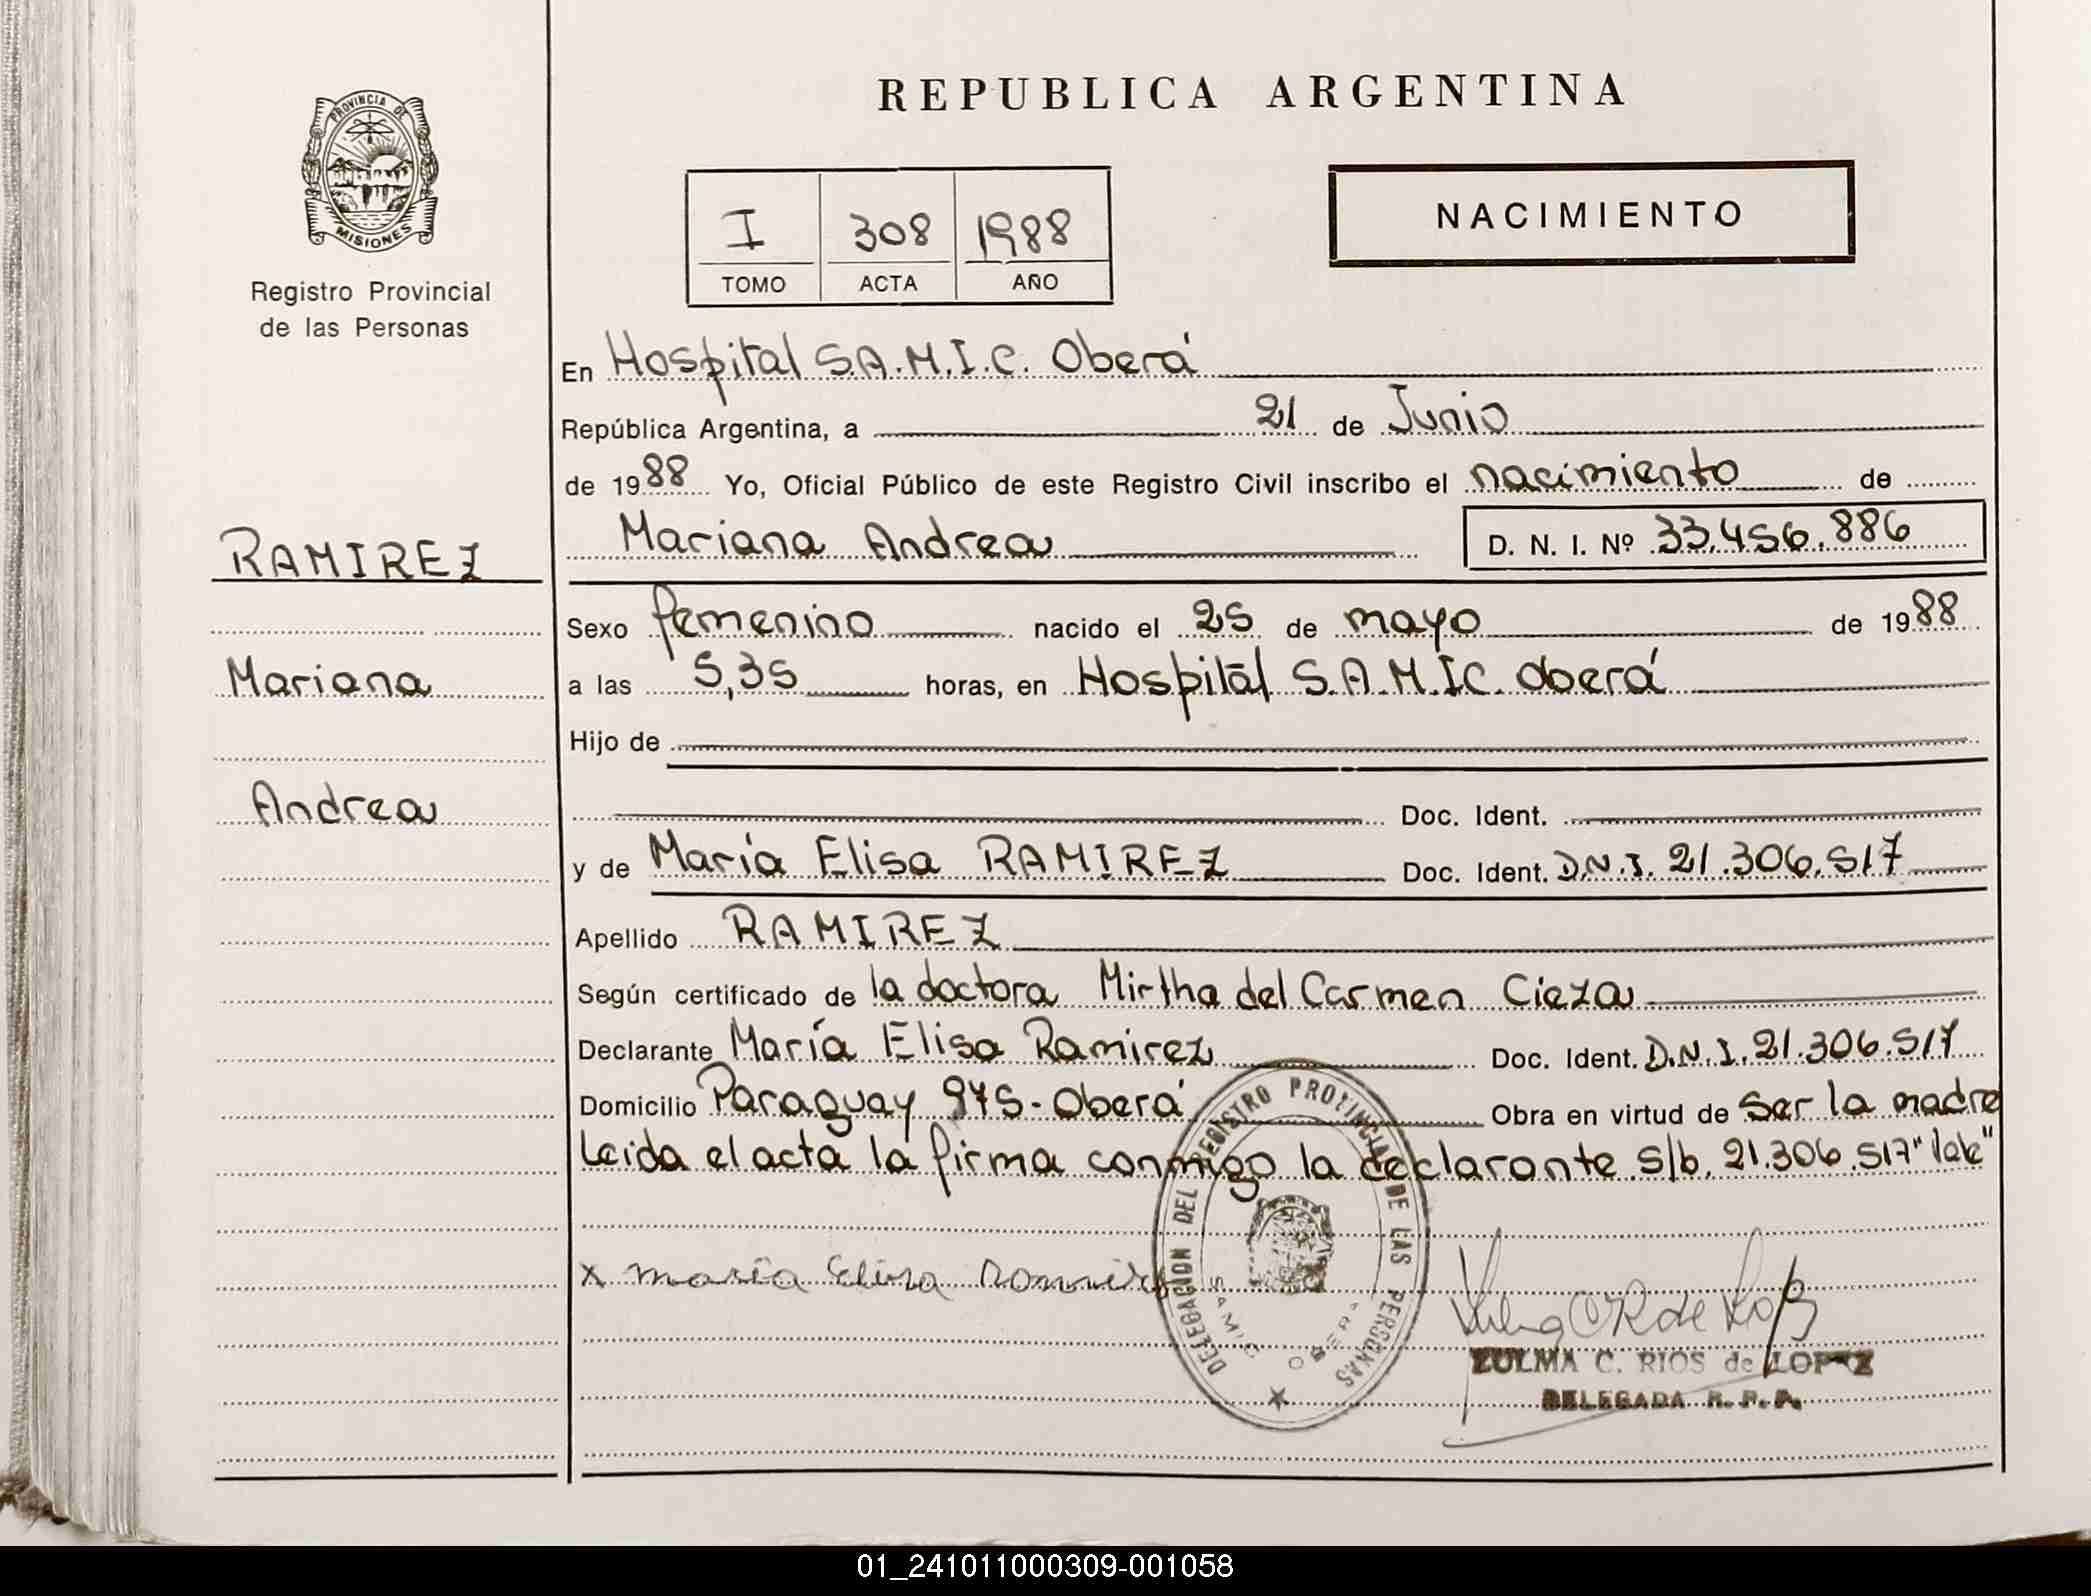 REPUBLICA ARGENTINA
PROVINCIA DE MISIONES
Registro Provincial
de las Personas
I 308 1988
TOMO ACTA AÑO
NACIMIENTO
RAMIREZ
Mariana
Andrea
En Hospital S.A.M.I.C. Oberá
República Argentina, a 21 de Junio
de 1988 Yo, Oficial Público de este Registro Civil inscribo el nacimiento de
Mariana Andrea D. N. I. Nº 33.456.886
Sexo femenino nacido el 25 de mayo de 1988
a las 5,35 horas, en Hospital S.A.M.I.C. Oberá
Hijo de
Doc. Ident.
y de María Elisa RAMIREZ Doc. Ident. D.N.I. 21.306.517
Apellido RAMIREZ
Según certificado de la doctora Mirtha del Carmen Cieza
Declarante María Elisa Ramirez Doc. Ident. D.N.I. 21.306.517
Domicilio Paraguay 975-Oberá Obra en virtud de ser la madre
Leida el acta la firma conmigo la declarante. s/b. 21.306.517 "Vale"
x maria Elisa Ramirez
DELEGACION DEL REGISTRO PROVINCIAL DE LAS PERSONAS
SAMIC OBERA
ZULMA C. RIOS de LOPEZ
DELEGADA R. P. P.
01_241011000309-001058